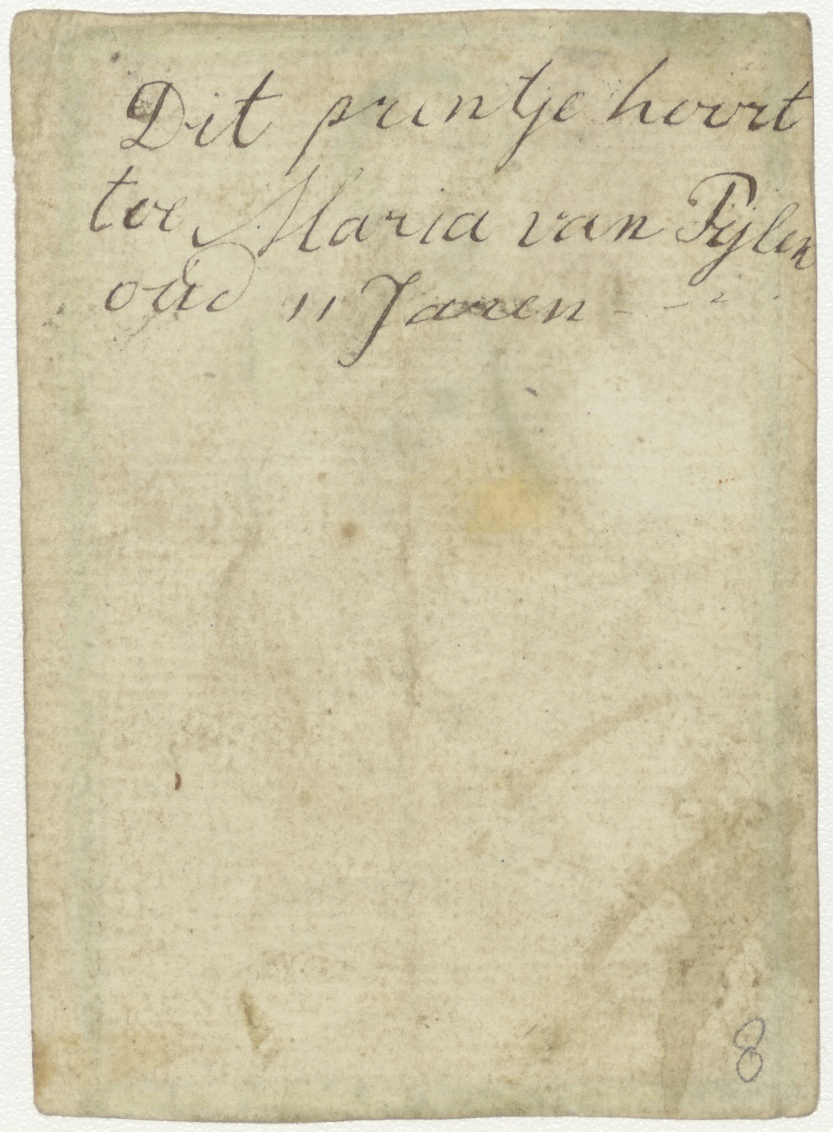 Dit printje hoort
toe Maria van Pijlen
oud 11 Jaren - - -
8